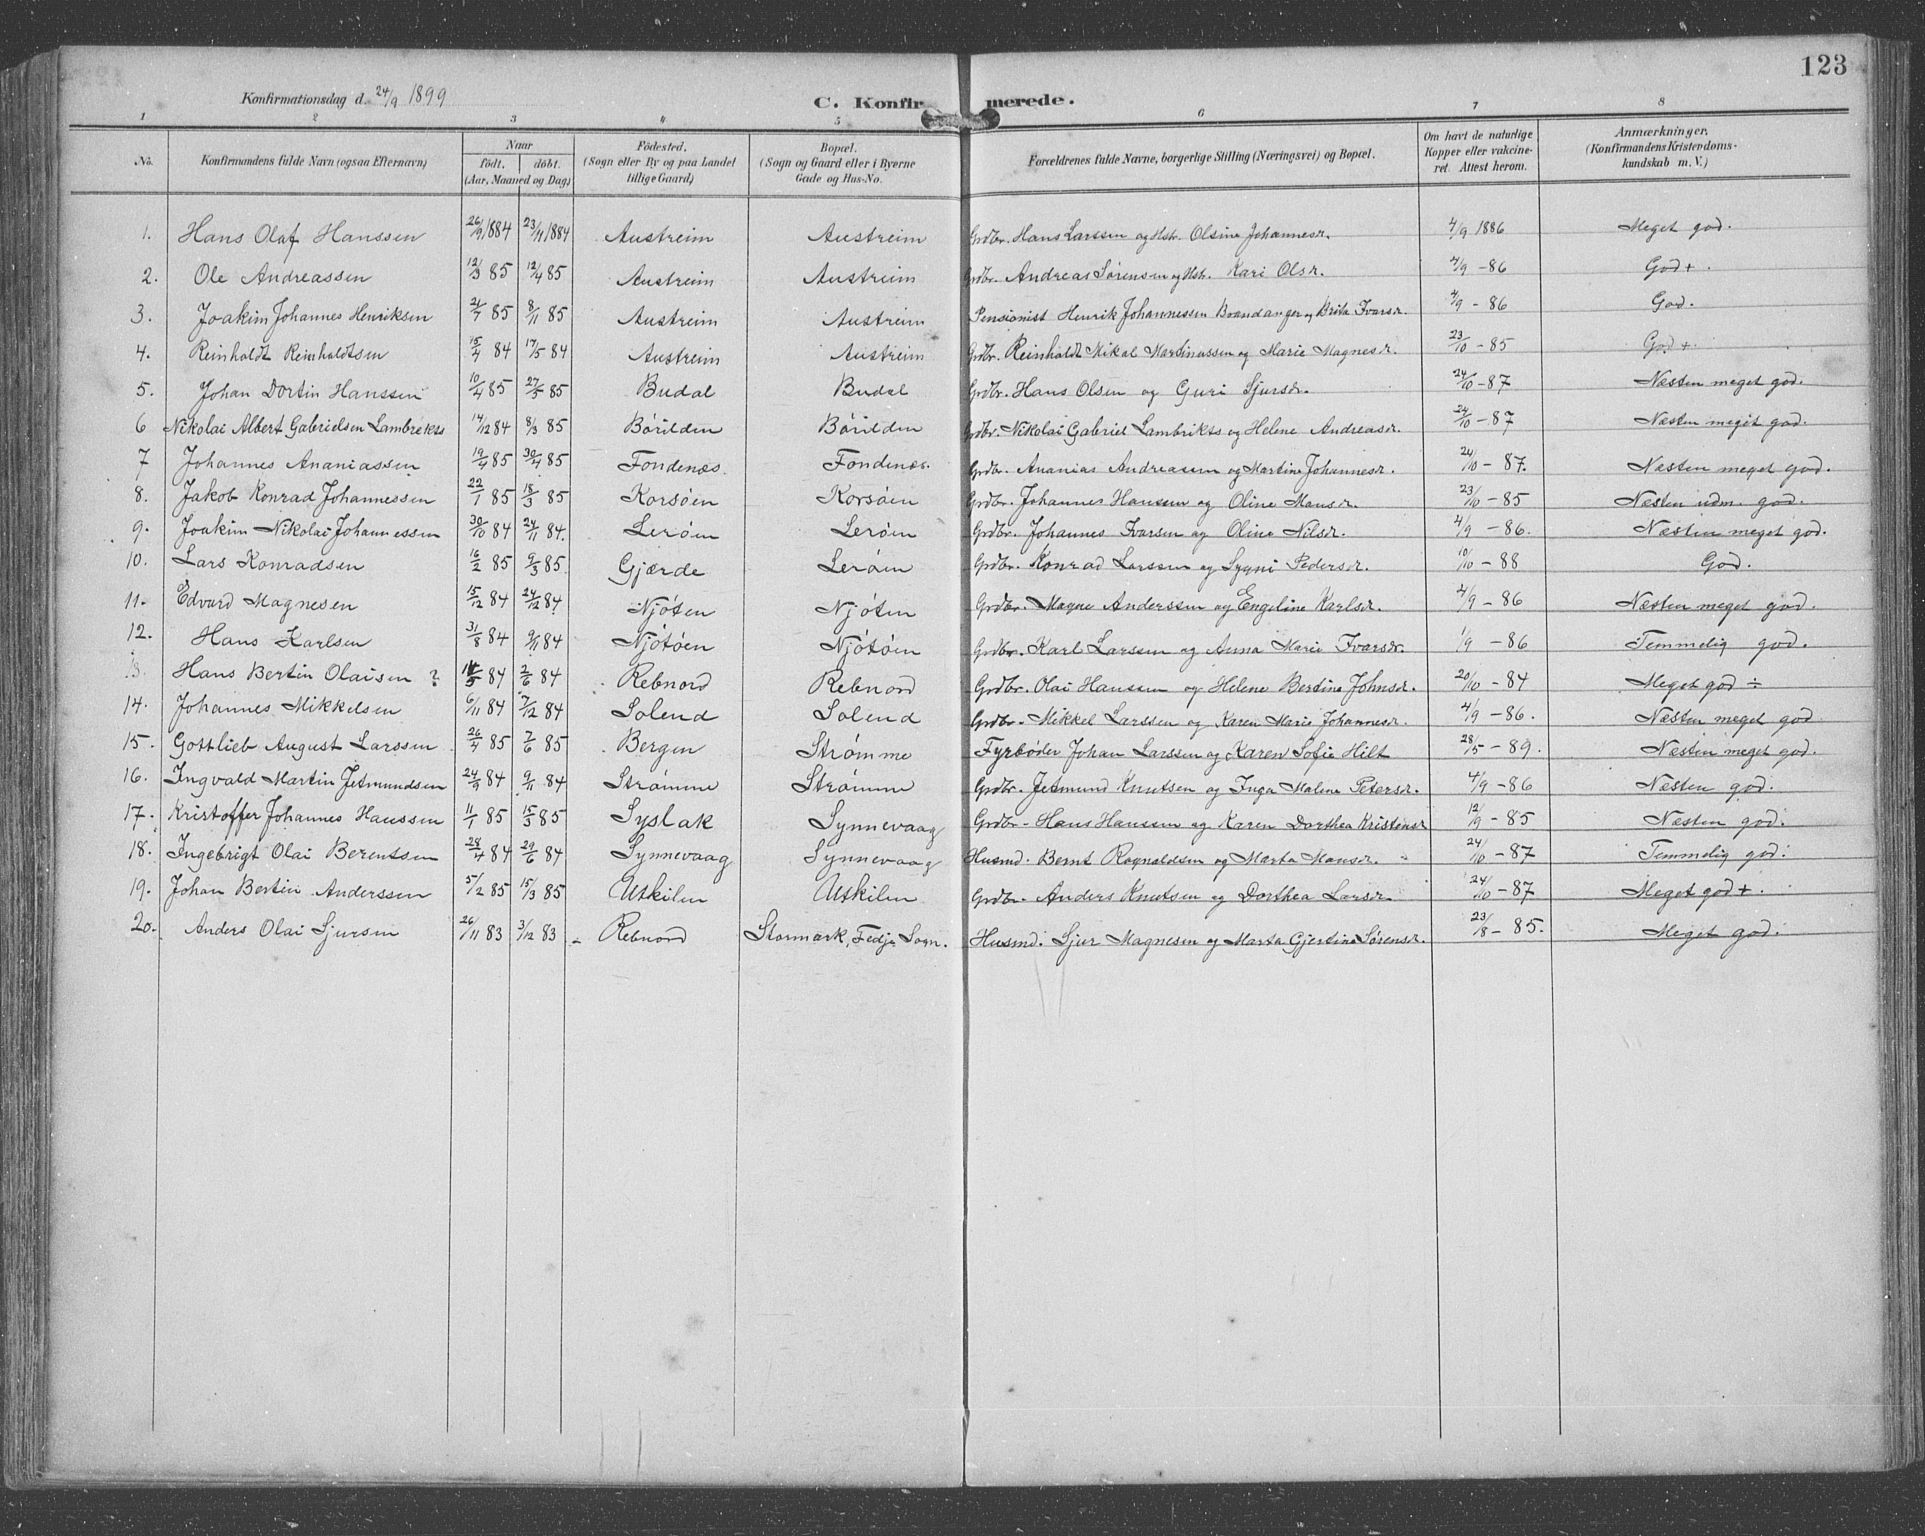 123
Konfirmationsdag d. 24/9 1899 C. Konfirmerede.
1 2 3 4 5 6 7 8
No. Konfirmandens fulde Navn (ogsaa Efternavn) Naar født. døbt. (Aar, Maaned og Dag) Fødested. (Sogn eller By og paa Landet tillige Gaard) Bopæl. (Sogn og Gaard eller i Byerne Gade og Hus-No. Forældrenes fulde Navne, borgerlige Stilling (Næringsvei) og Bopæl. Om havt de naturlige Kopper eller vakcineret. Attest herom. Anmærkninger. (Konfirmandens Kristendomskundskab m. V.)
1. Hans Olaf Hanssen 26/9 1884 23/11 1884 Austreim Austreim Grdbr. Hans Larssen og Hst. Olsine Johannesdr. 4/9 1886 Meget god.
2. Ole Andreassen 12/3 85 12/4 85 Austreim Austreim Grdbr. Andreas Sørensen og Hst. Kari Olsdr. 4/9 - 86 God +.
3. Joakim Johannes Henriksen 21/7 85 8/11 85 Austreim Austreim Pensionist Henrik Johannessen Brandanger og Brita Ivarsdr. 4/9 - 86 God.
4. Reinholdt Reinholdtsen 15/4 84 17/5 84 Austreim Austreim Grdbr. Reinholdt Mikal Martinussen og Marie Magnesdr. 23/10 - 85 God +.
5. Johan Dortin Hanssen 10/4 85 27/5 85 Budal Budal Grdbr. Hans Olsen og Guri Sjursdr. 24/10 - 87 Næsten meget god.
6 Nikolai Albert Gabrielsen Lambrekts 14/12 84 8/3 85 Børilden Børilden Grdbr. Nikolai Gabriel Lambrikts og Helene Andreasdr. 24/10 - 87 Næsten meget god.
7 Johannes Ananiassen 19/4 85 30/4 85 Fondenæs. Fondenæs. Grdbr. Ananias Andreassen og Martine Johannesdr. 24/10 - 87. Næsten meget god.
8. Jakob Konrad Johannessen 22/1 85 18/3 85 Korsøen Korsøen Grdbr. Johannes Hanssen og Oline Monsdr. 23/10 - 85 Næsten udm. god.
9. Joakim Nikolai Johannessen 30/10 84 24/11 84. Lerøen Lerøen Grdbr. Johannes Ivarsen og Oline Nilsdr. 4/9 - 86. Næsten meget god.
10. Lars Konradsen 16/2 85 9/3 85. Gjærde Lerøen Grdbr. Konrad Larssen og Sygni Pedersdr. 10/10 - 88 God.
11. Edvard Magnesen 15/12 84 24/12 84 Njøten Njøten Grdbr. Magne Anderssen og Engeline Karlsdr. 4/9 - 86 Næsten meget god.
12. Hans Karlsen 31/8 84 9/11 84 Njøtøen Njøtøen Grdbr. Karl Larssen og Anna Marie Ivarsdr. 1/9 - 86 Temmelig god.
13. Hans Bertin Olaisen ? 84 2/6 84 Rebnord Rebnord Grdbr. Olai Hanssen og Helene Bertine Johnsdr. 20/10 - 84 Meget god ÷
14. Johannes Mikkelsen 6/11 84 7/12 84 Solend Solend Grdbr. Mikkel Larssen og Karen Marie Johannesdr. 4/9 - 86. Næsten meget god
15. Gottlieb August Larssen 26/4 85 7/6 85 Bergen Strømme Fyrbøder Johan Larssen og Karen Sofie Hilt 28/5 - 89. Næsten meget god.
16. Ingvald Martin Jetmundsen 24/9 84 9/11 84 Strømme Strømme Grdbr. Jetmund Knutsen og Inga Malene Petersdr. 4/9 - 86 Næsten god.
17. Kristoffer Johannes Hanssen 11/1 85 15/3 85 Syslak Synnevaag Grdbr. Hans Hanssen og Karen Dorthea Kristensdr 12/9 - 85 Næsten god.
18. Ingebrigt Olai Berentsen 28/4 84 29/6 84 Synnevaag Synnevaag Husmd. Bernt Rognaldsen og Marta Monsdr. 24/10 - 87 Temmelig god.
19. Johan Bertin Anderssen 5/2 85 15/3 85 Utkilen Utkilen Grdbr. Anders Knutsen og Dorthea Larsdr. 24/10 - 87 Meget god +.
20. Anders Olai Sjursen 26/11 83 3/12 83 Rebnord Stormark, Fedje Sogn. Husmd. Sjur Magnesen og Marta Gjertine Sørensdr. 23/8 - 85. Meget god.